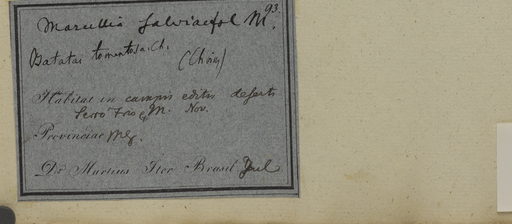 93
Marcellia salviaefol M.
Batatas tomentosa Ch.
(Choisy)
Habitat in campis editis deserti
Serro Frio, M. Nov.
Provinciae M.g.
Dr Martius Iter Brasil